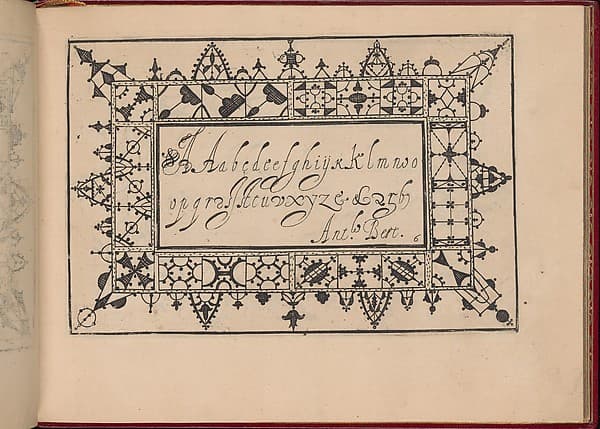 A A a b c d e e f g h i ij k k l m n o o
o p q r s ſ t t u v x y z & & 
Anth. Bert. 6